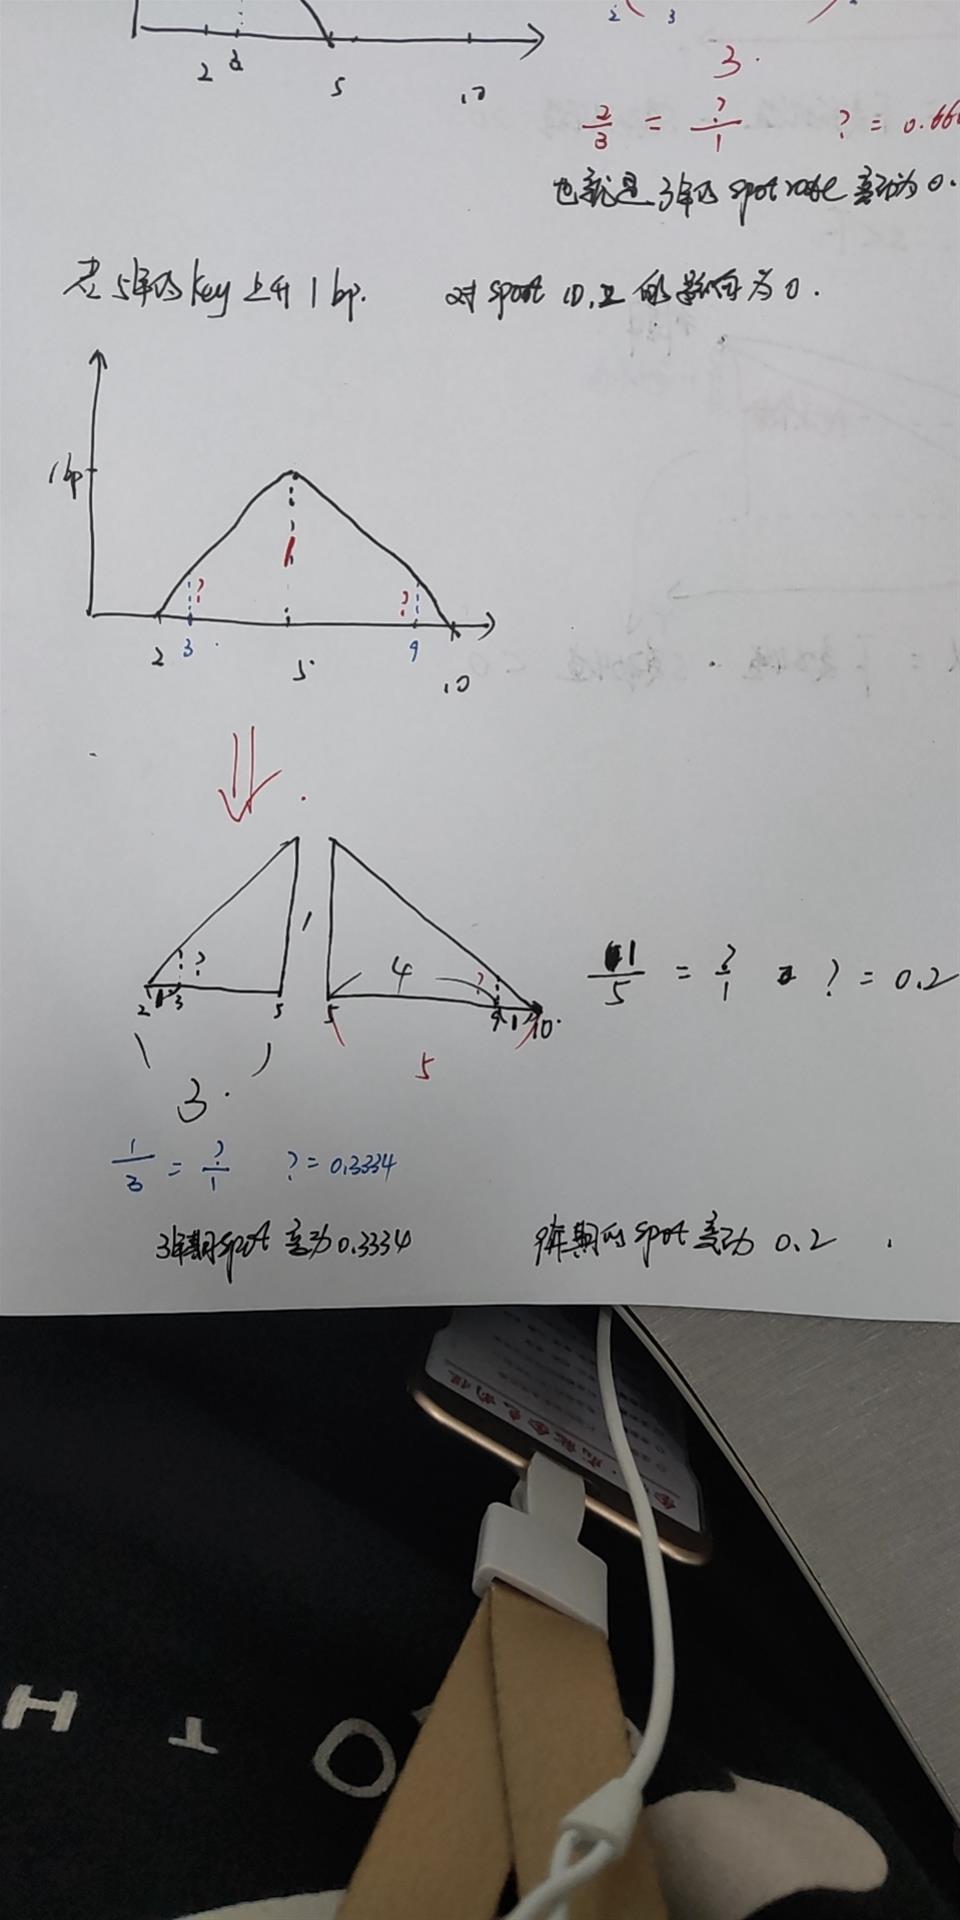 2 3
3.
2 3 5 10
2/3 = ?/1 ? = 0.666
也就是3年的 spot rate 变动为 0.
若5年的 key 上升 1 bp. 对 spot 10, 2 的影响为 0.
1 bp
1
? ?
2 3 5 9 10
1
? 4 ?
1/5 = ?/1 ? = 0.2
2 1 3 5 5 9 1 10.
3. 5
1/3 = ?/1 ? = 0.3334
3年期 spot 变动 0.3334 9年期的 spot 变动 0.2 .
H T O